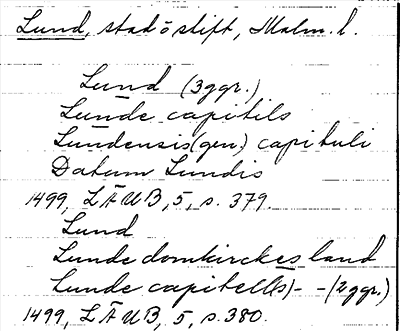 Lund, stad o stift, Malm. l.
Lund (3ggr.)
Lunde capitils
Lundensis (gen) capituli
Datum Lundis
1499, LÄUB, 5, s. 379.
Lund
Lunde domkirckes land
Lunde capitell(s) - - (2ggr.)
1499, LÄUB, 5, s. 380.